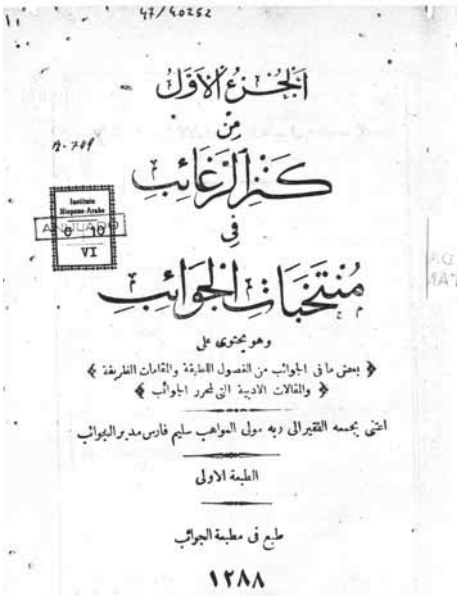 47/40252
الجزء الأوّل
من
A-709
كنز الرغائب
Instituto
Hispano-Arabe
ANULADO
VI
في
منتخبات الجوائب
وهو يحتوى على
بعض ما فى الجوائب من الفصول اللطيفة والمقامات الظريفة
والمقالات الادبية التى لمحرر الجوائب
اعتنى بجمعه الفقير الى ربه مولى المواهب سليم فارس مدير الجوائب
الطبعة الاولى
طبع فى مطبعة الجوائب
١٢٨٨